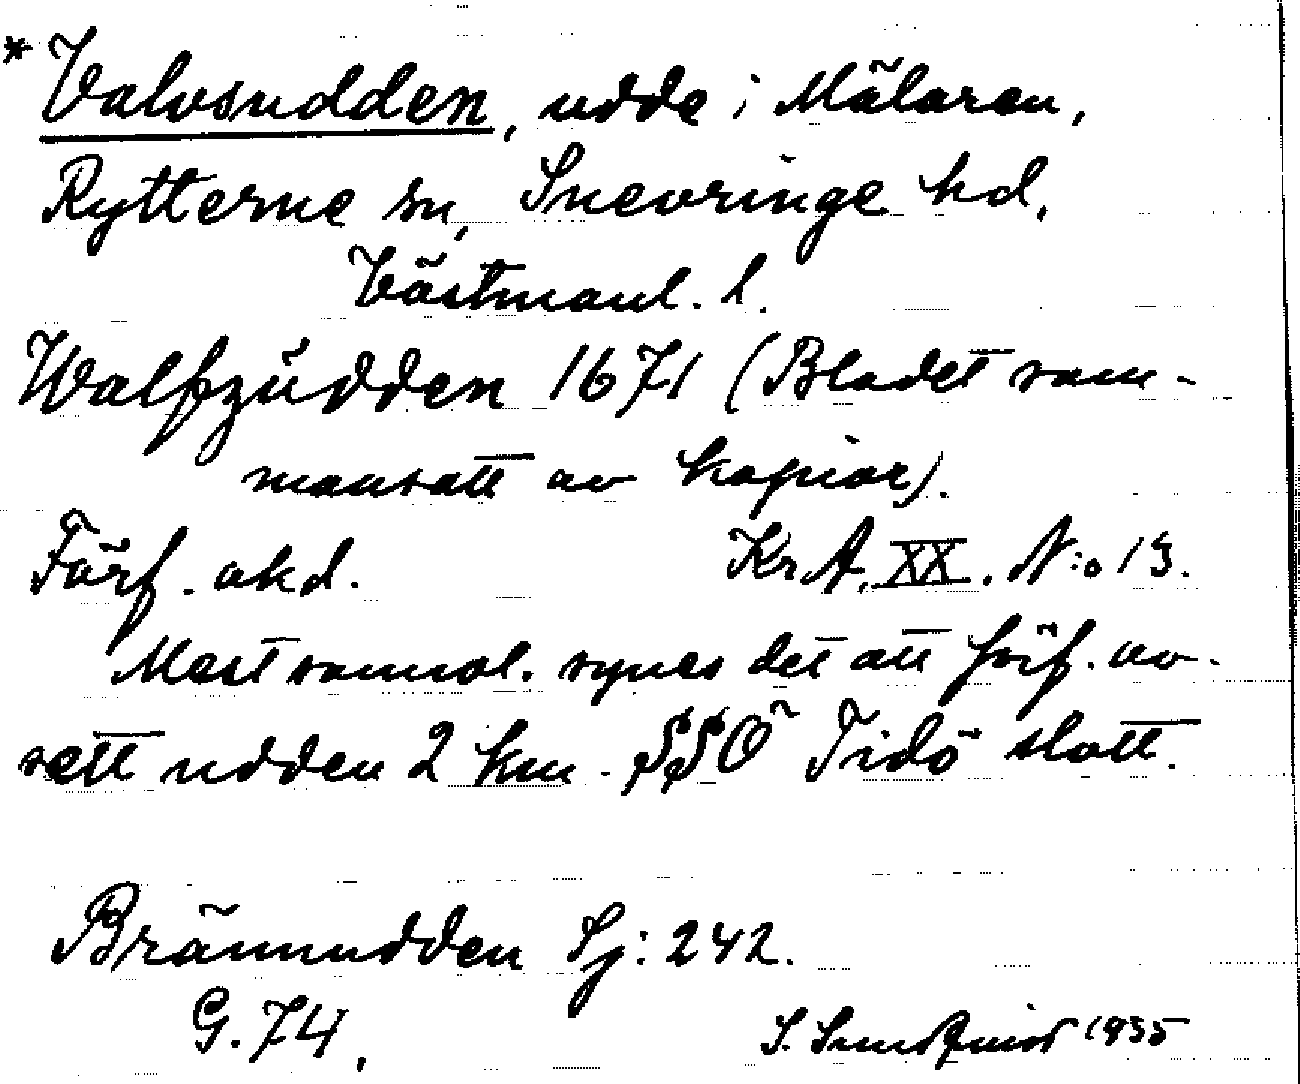 * Valvsudden, udde i Mälaren,
Rytterne sn, Snevringe hd,
Västmanl. l.
Walfzŭdden 1671 (Bladet sam-
mansatt av kopior).
Förf. okd. Kr.A. XX. N:o 13.
Mest sannol. synes det att förf. av-
sett udden 2 km. SSÖ Tidö slott.
Brännudden Sj: 242.
G. 74,
S. Sundquist 1935